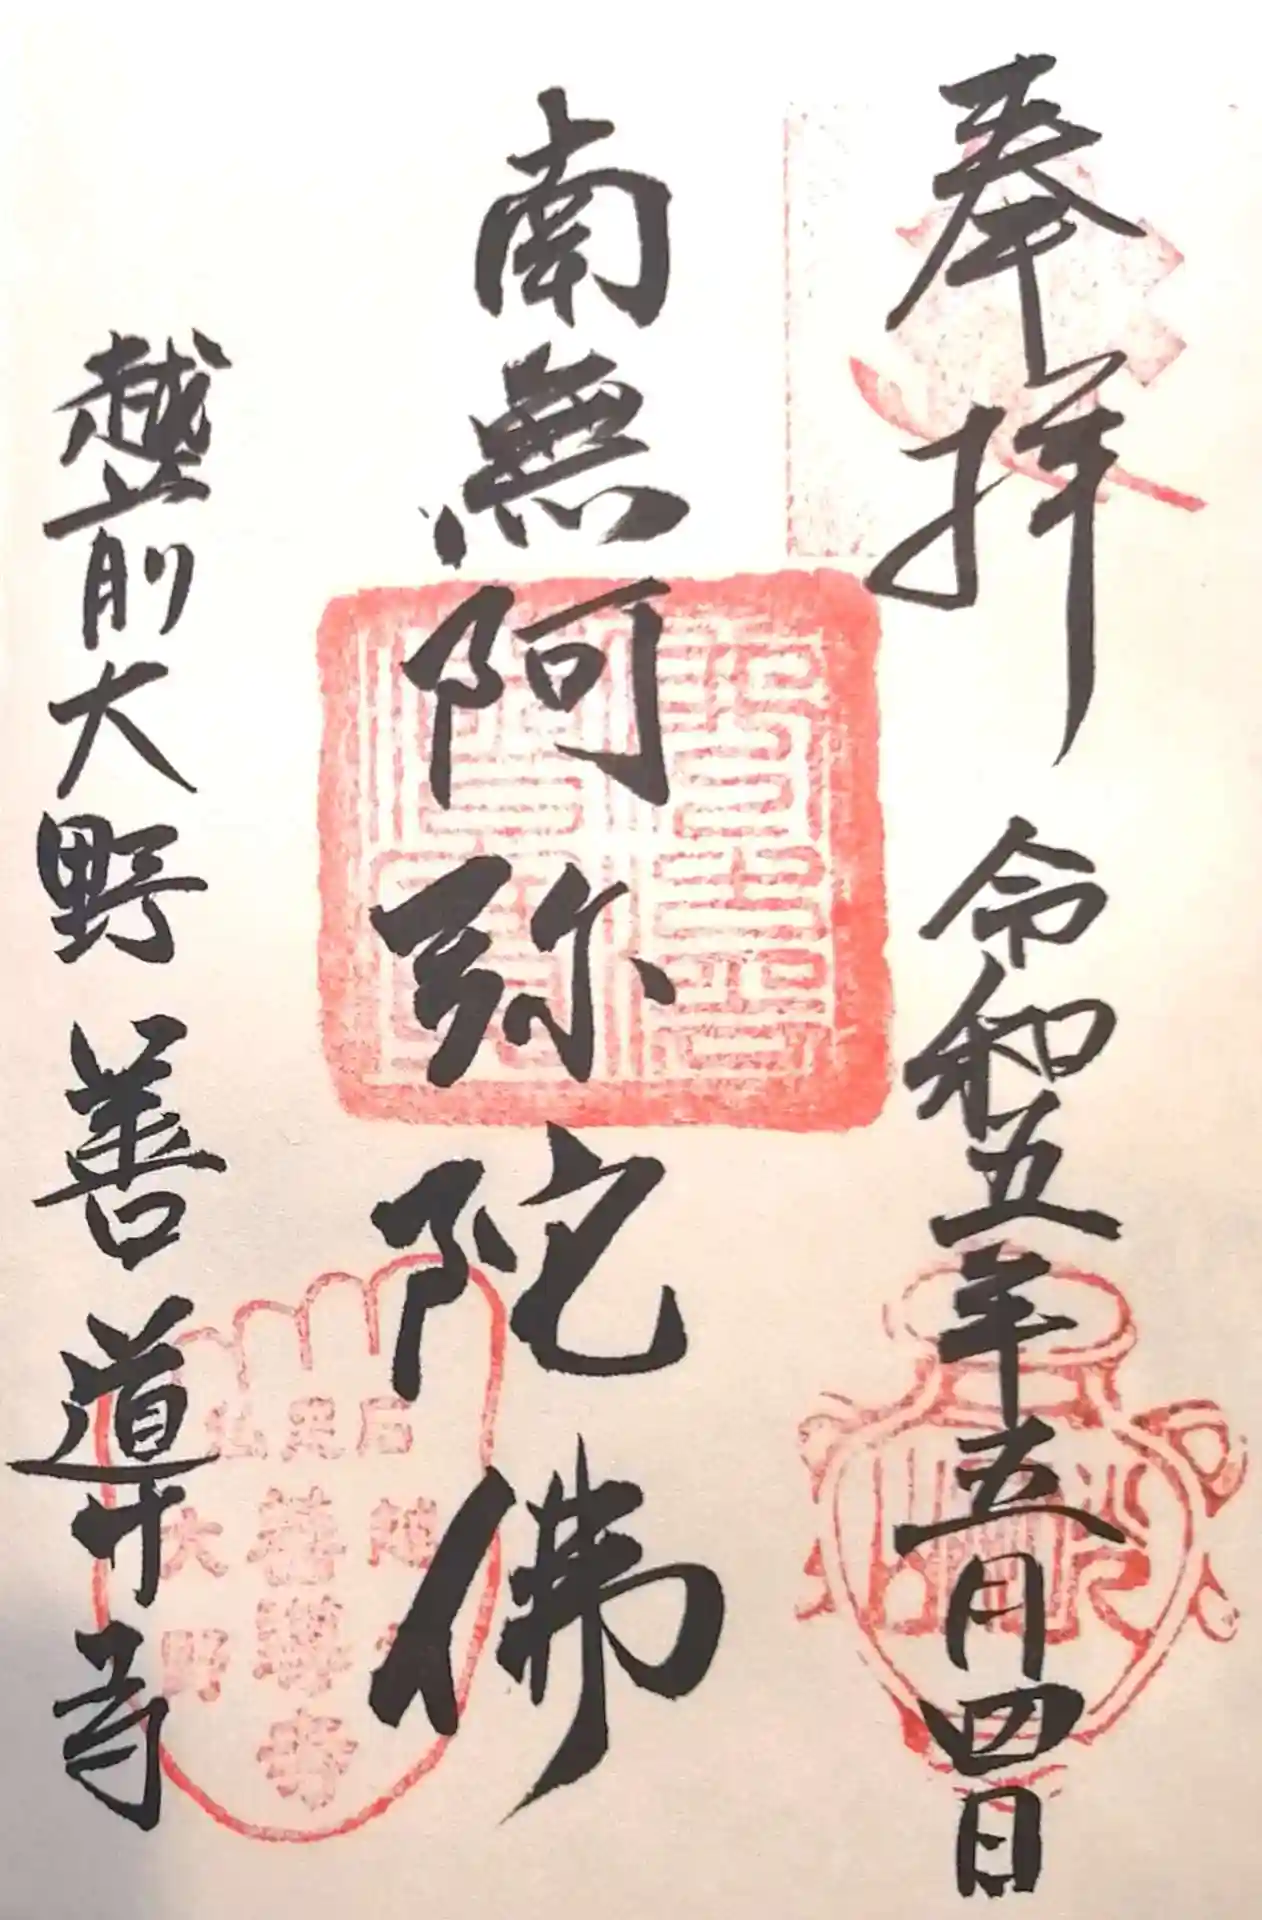 奉拝 令和五年五月四日
南無阿弥陀佛
越前大野 善導寺
石
仏
大野
善導寺